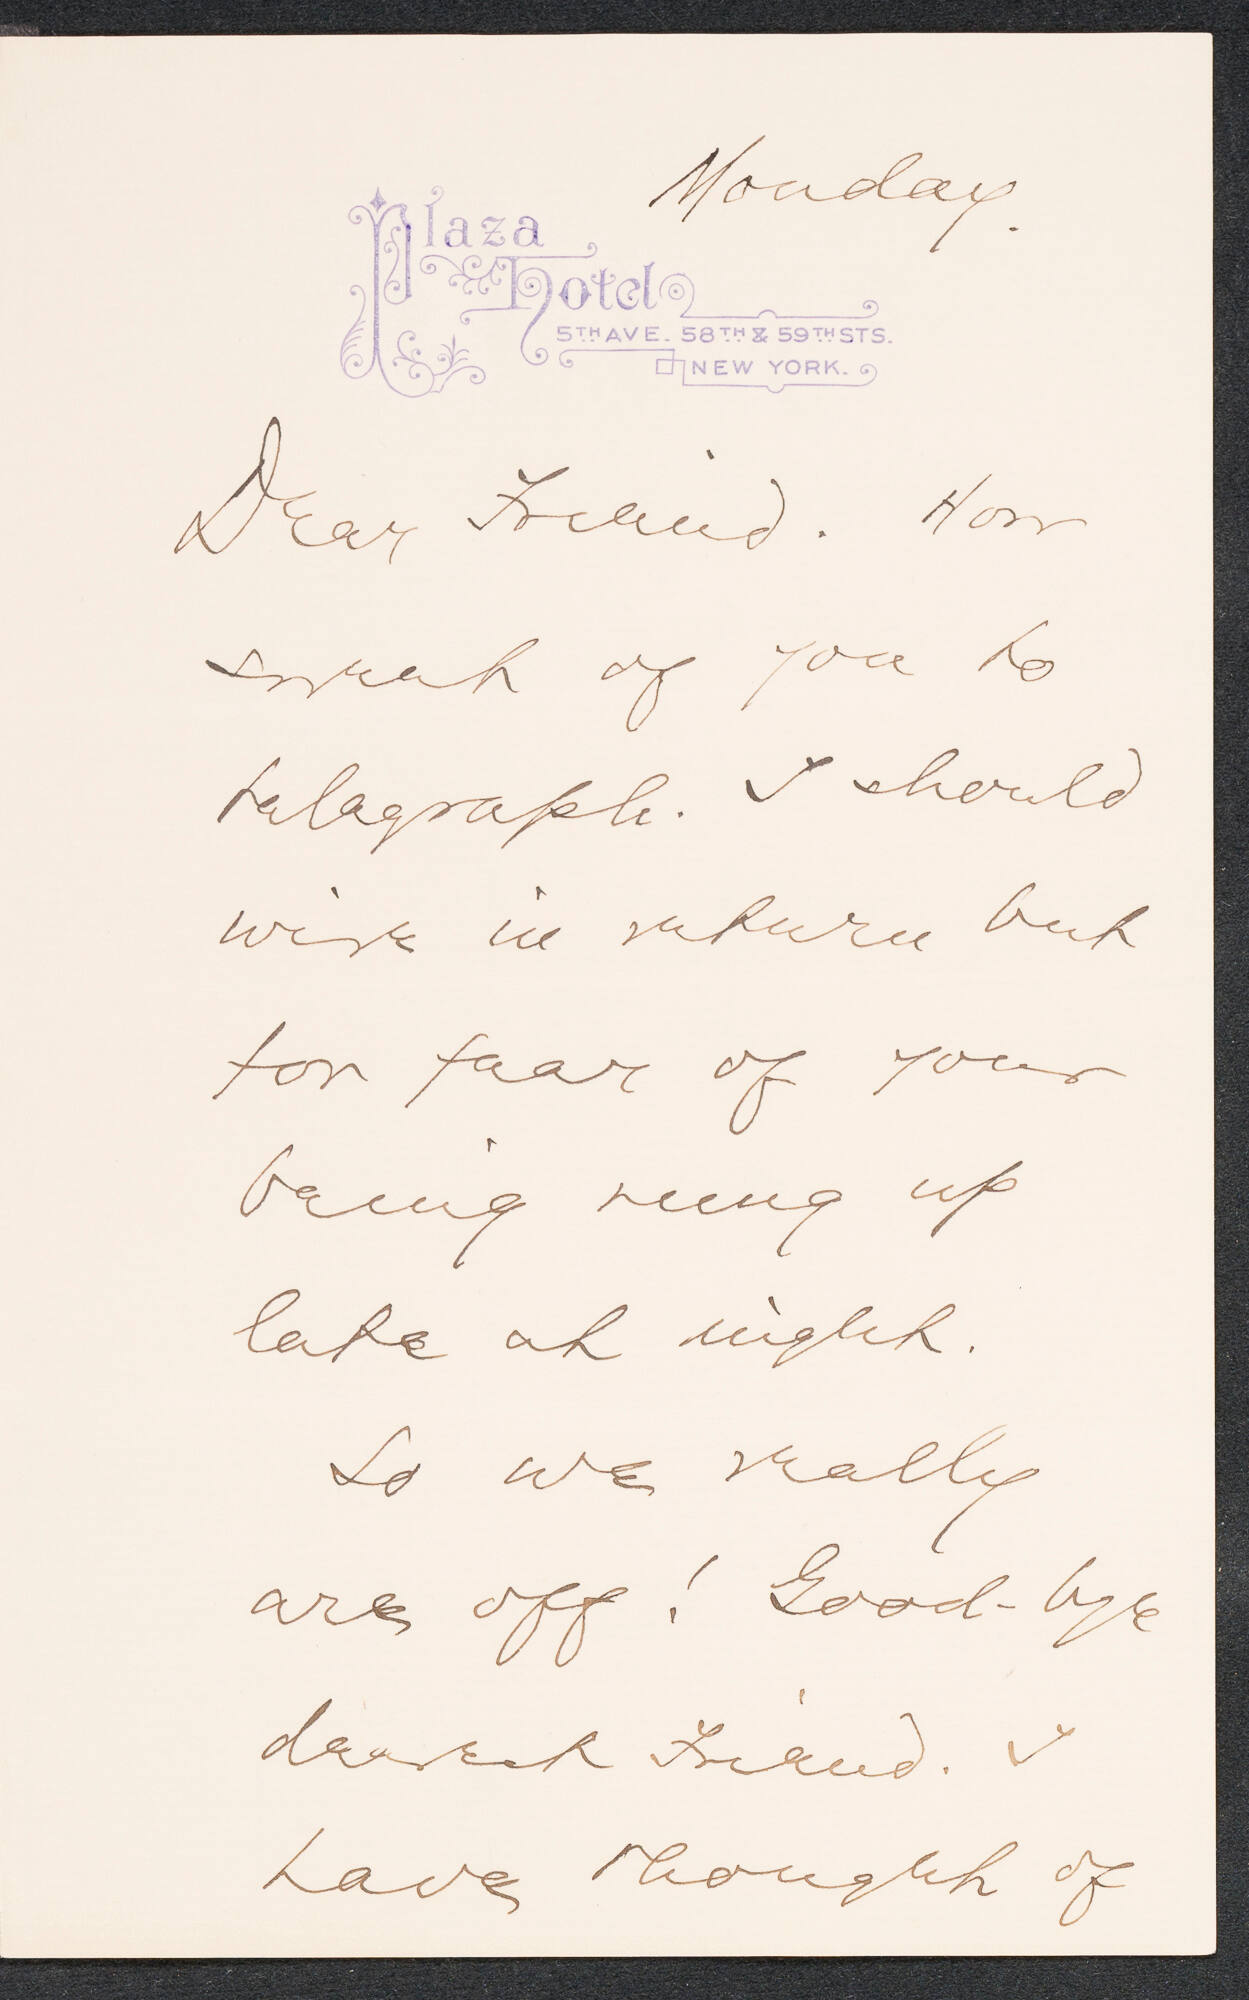 Monday.
Plaza
Hotel
5TH AVE. 58TH & 59TH STS.
NEW YORK.
Dear Friend. How
sweet of you to
telegraph. I should
wire in return but
for fear of your
being rung up
late at night.
So we really
are off! Good-bye
dearest Friend. I
have thought of